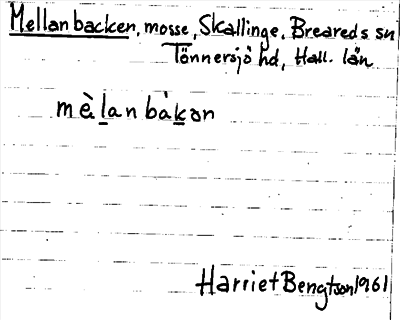 Mellanbacken, mosse, Skallinge, Breareds sn
Tönnersjö hd, Hall. län
mèl̲an bàk̲ən
Harriet Bengtson 1961